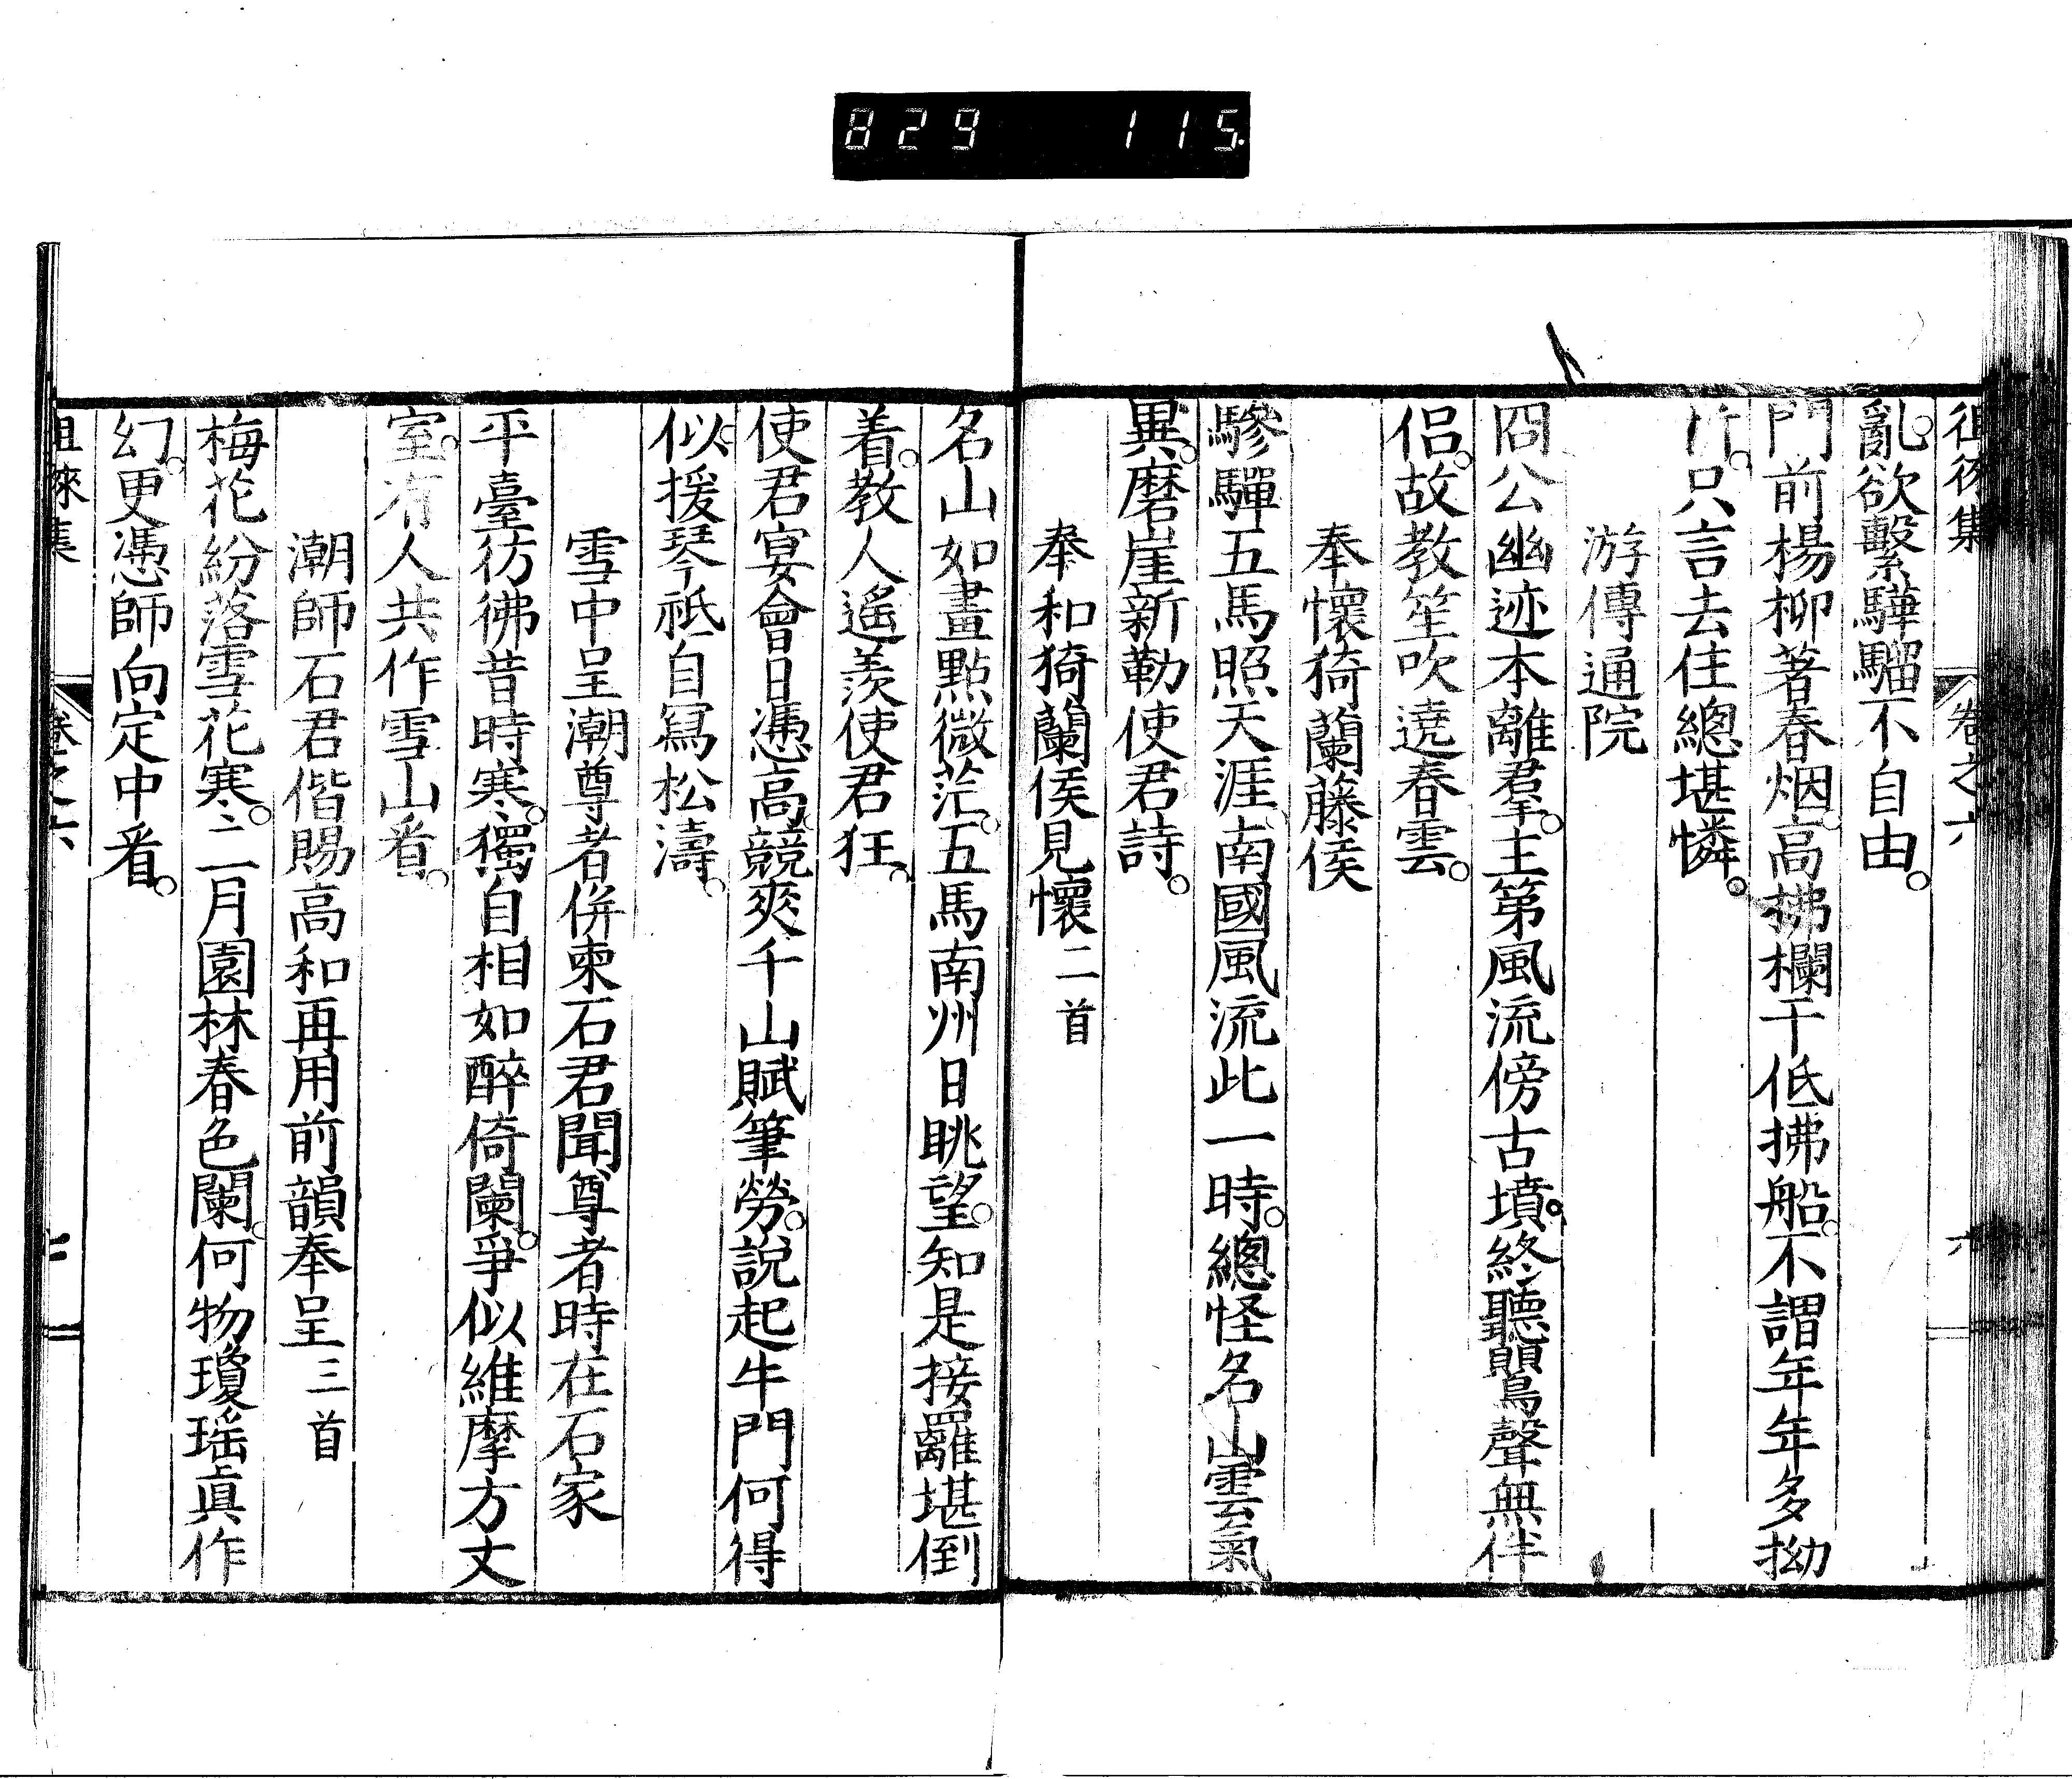 829 115.
徂徠集 卷之六 六
亂。欲繫驊騮不自由。
門前楊柳著春烟。高拂欄干低拂船。不謂年年多拗
折。只言去住總堪憐。
游傳通院
冏公幽迹本離羣。主第風流傍古墳。終聽鸎聲無伴
侶。故教笙吹遶春雲。
奉懷猗蘭藤侯
驂驒五馬照天涯。南國風流此一時。總怪名山雲氣
異。磨崖新勒使君詩。
奉和猗蘭侯見懷二首
名山如畫點微茫。五馬南州日眺望。知是接䍦堪倒
着。教人遙羨使君狂。
使君宴會日憑高。競爽千山賦筆勞。說起牛門何得
似。援琴祇自寫松濤。
雪中呈潮尊者併柬石君聞尊者時在石家
平臺彷彿昔時寒。獨自相如醉倚闌。爭似維摩方丈
室。有人共作雪山看。
潮師石君偕賜高和再用前韻奉呈三首
梅花紛落雪花寒。二月園林春色闌。何物瓊瑤眞作
幻。更憑師向定中看。
徂徠集 卷之六